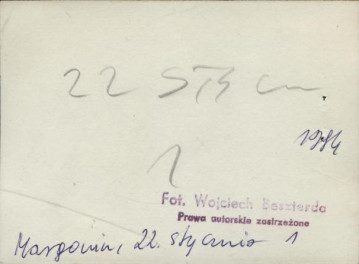 22 STYCZ
1994
1
Fot. Wojciech Beszterda
Prawa autorskie zastrzeżone
Margonin, 22. stycznia 1